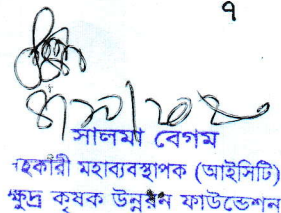 ৭
সালমা বেগম
সহকারী মহাব্যবস্থাপক (আইসিটি)
ক্ষুদ্র কৃষক উন্নয়ন ফাউন্ডেশন